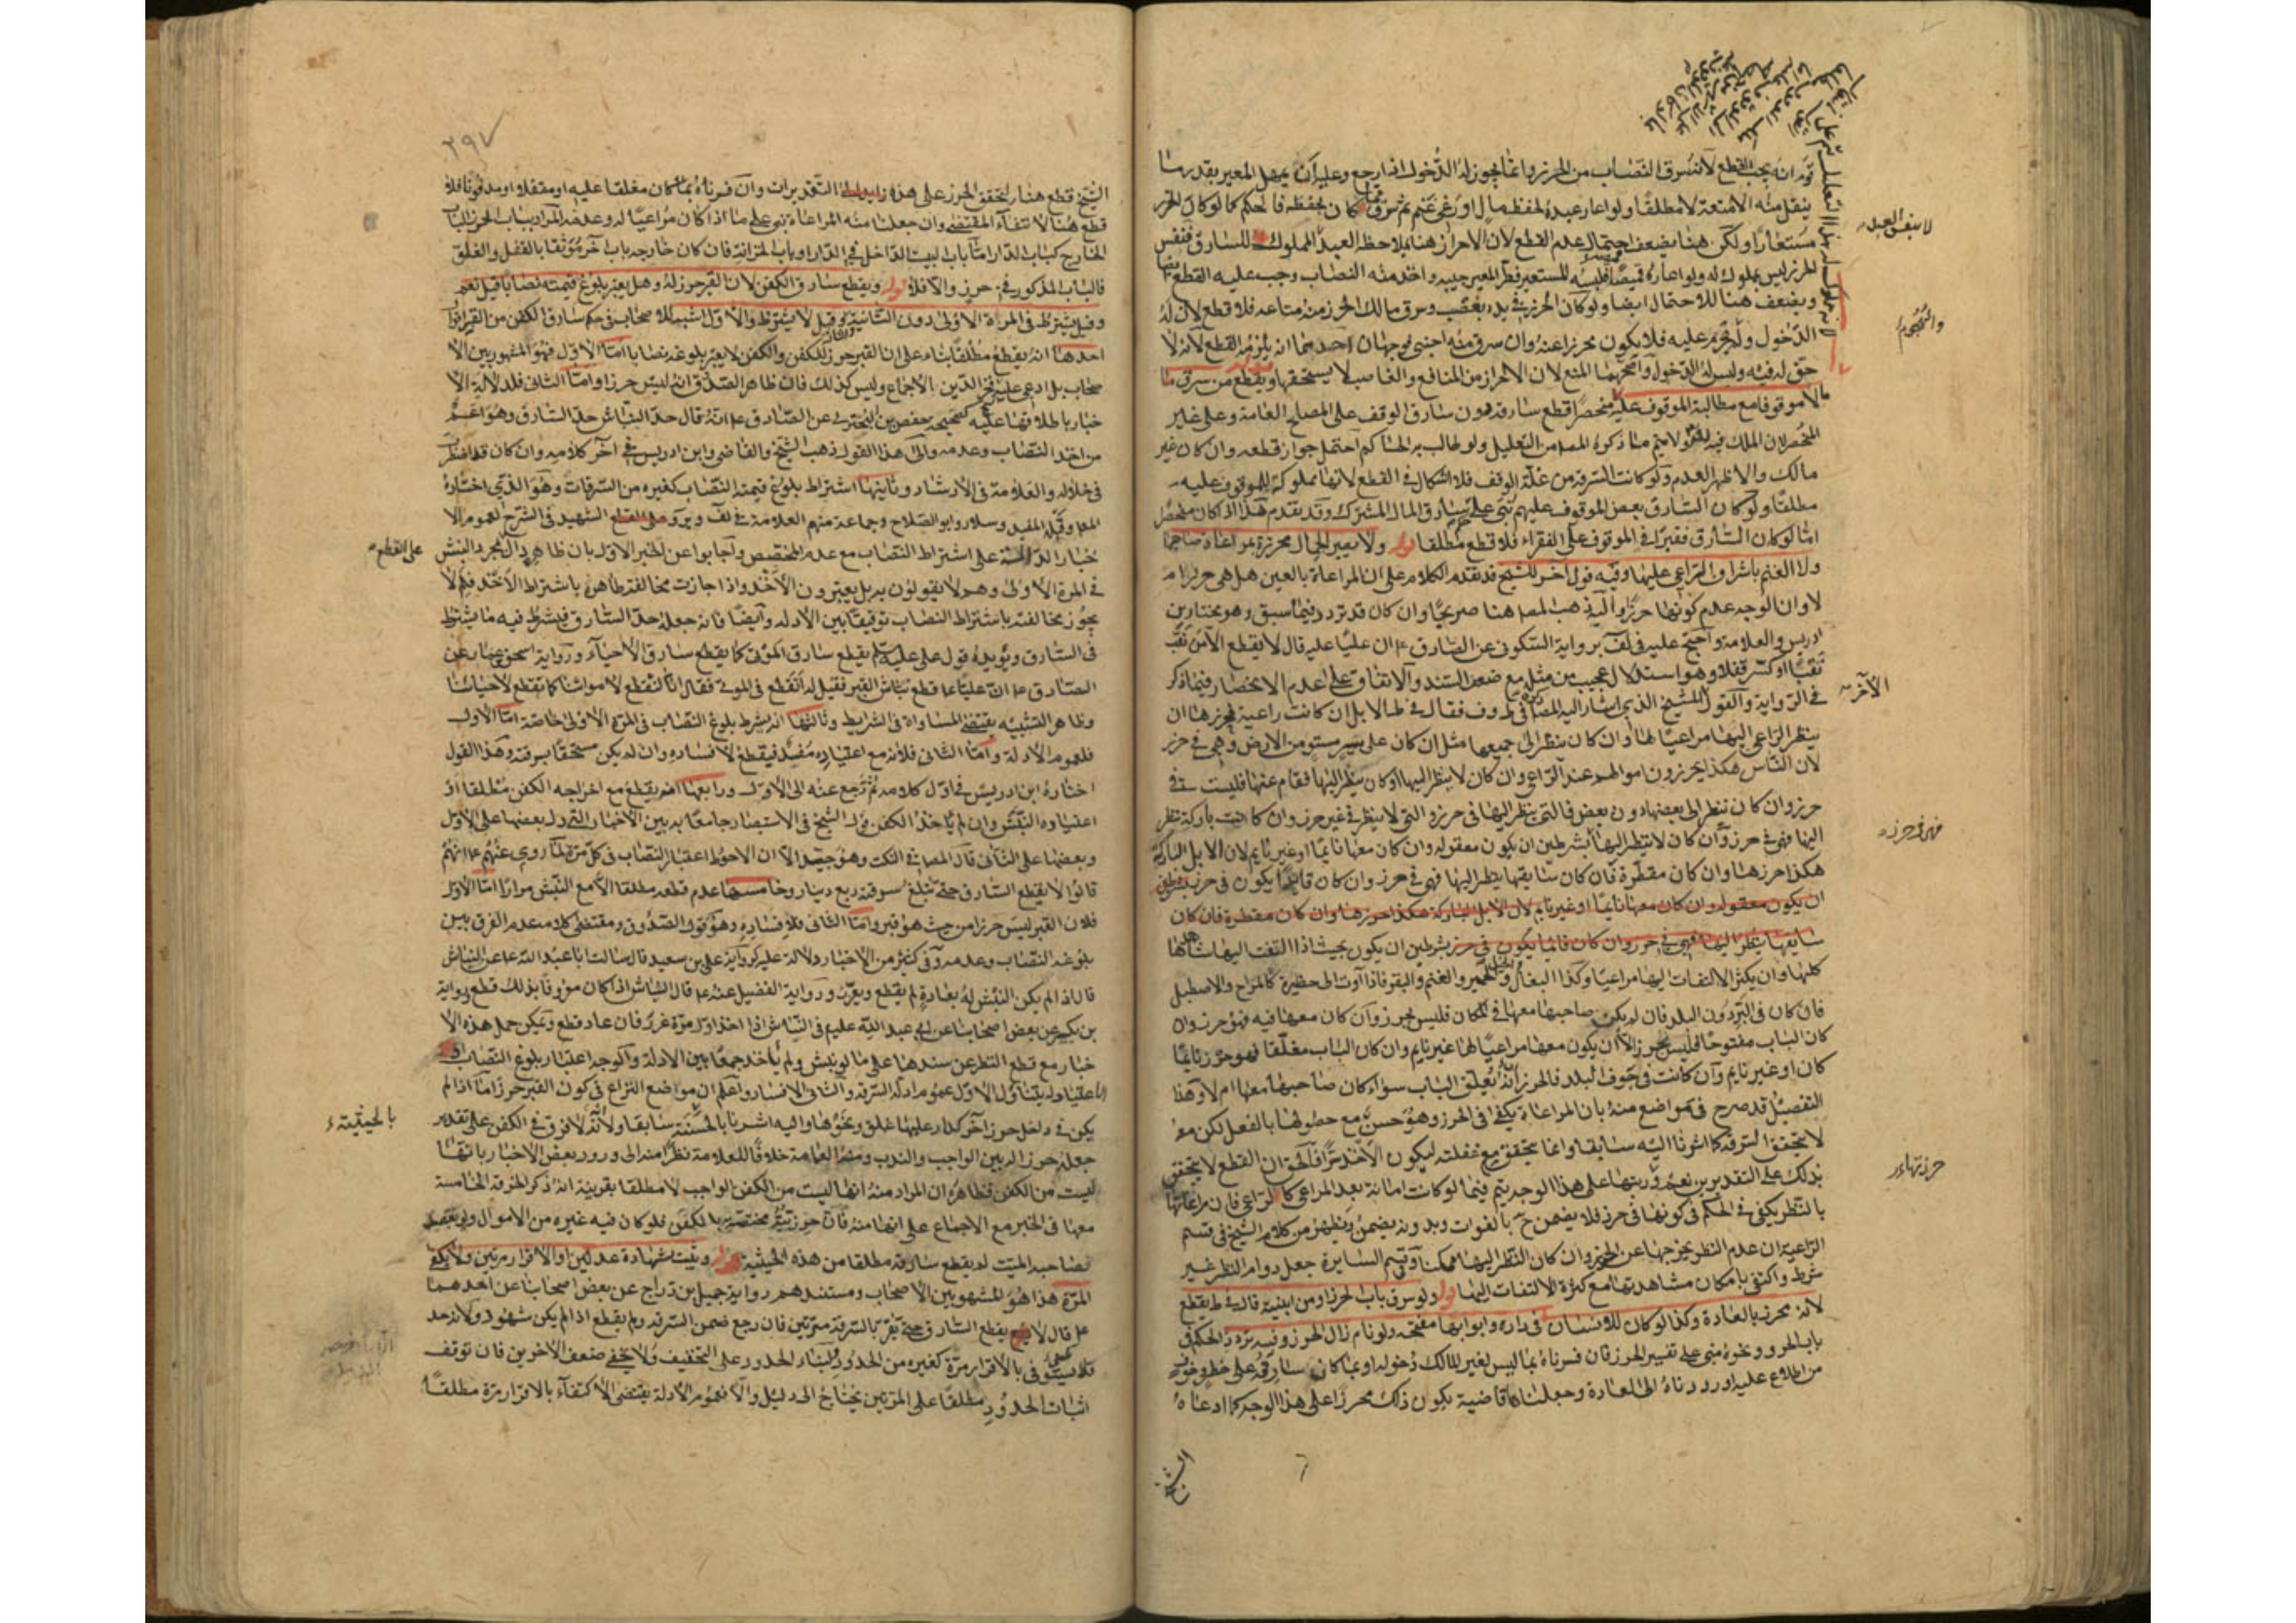 قوله انه يجب القطع لأنه سرق النصاب من الحرز وانما يجوز له الدخول اذا رجع وعليه أن يمهل المعير بقدر ما
ينقل منه الامتعة لا مطلقا ولو اعار عبده لحفظ مال او رعي غنم ثم سرق كان يحفظه فالحكم كما لو كان الحرز
مستعارا ولكن هنا يضعف احتمال عدم القطع لأن الاحراز هنا بملاحظة العبد المملوك للسارق فنفس
الحرز ليس بملوك له ولو اعاره قميصا فلبسه المستعير فطر المعير جيبه واخذ منه النصاب وجب عليه القطع
ويضعف هنا للاحتمال ايضا ولو كان الحرز في يده بغصب وسرق مالك الحرز منه متاعه فلا قطع لأن له
الدخول ولم يحرم عليه فلا يكون محرزا عنه وان سرق منه اجنبي فوجهان احدهما انه يلزمه القطع لأنه لا
حق له فيه وليس له الدخول وأصحهما المنع لأن الاحراز من المنافع والغاصب لا يستحقها ويقطع من سرق
مالا موقوفا مع مطالبة الموقوف عليه منحصرا قطع سارقه دون سارق الوقف على المصالح العامة وعلى غير
المنحصر لان الملك فيه ولا يتم ما ذكره المصـ من التعليل ولو طالب به الحاكم احتمل جواز قطعه وان كان غير
مالك والاظهر العدم ولو كانت السرقة من غلة الوقف فلا اشكال في القطع لأنها مملوكة للموقوف عليه
مطلقا ولو كان السارق بعض الموقوف عليهم بني على سارق المال المشترك وقد تقدم هذا اذا كان منحصرا
امّا لو كان السارق فقيرا في الموقوف على الفقراء فلا قطع مطلقا قوله ولا يصير الجمال محرزة بمراعاة صاحبها
ولا الغنم باشراف الراعي عليها وفيه قول آخر للشيخ قد تقدم الكلام على ان المراعاة بالعين هل هي حرز ام
لا وان الوجه عدم كونها حرزا واليه ذهب المصـ هنا صريحا وان كان قد تردد فيما سبق وهو مختار بن
ادريس والعلامة واحتج عليه في لف برواية السكوني عن الصادق ع ان عليا عليه قال لا يقطع الا من نقب
نقبا او كسر قفلا وهو استدلال عجيب من مثله مع ضعف السند والاتفاق على عدم الانحصار فيما ذكر
في الرواية والقول للشيخ الذي اشار اليه المصـ ذكره في ط وف فقال في ط الابل ان كانت راعية فحرزها ان
ينظر الراعي اليها مراعيا لها وان كان ينظر الى جميعها مثل ان كان على نشز مستو من الارض وهي في حرز
لأن الناس هكذا يحرزون اموالهم عند الراعي وان كان لا ينظر اليها او كان ينظر اليها فقام عنها فليست في
حرز وان كان ينظر الى بعضها دون بعض فالتي ينظر اليها في حرز والتي لا ينظر في غير حرز وان كانت باركة ينظر
اليها فهي في حرز وان كان لا ينظر اليها بشرطين ان يكون معقولة وان كان معها نايما او غير نايم لان الابل الباركة
هكذا حرزها وان كان مقطرة فان كان سايقها ينظر اليها فهي في حرز وان كان قايدا يكون في حرز بشرطين
ان يكون معقولة وان كان معها نايما او غير نايم لأن الابل الباركة هكذا حرزها وان كان مقطرة فان كان
سايقها ينظر اليها فهي في حرز وان كان قائما يكون في حرز بشرطين ان يكون بحيث اذا التفت اليها شاهدها
كلها وان يكثر الالتفات اليها مراعيا وكذا البغال والخيل والحمير والغنم والبقر فاذا آوت الى حظيرة كالمراح والاصطبل
فان كان في البر دون البلد فان لم يكن صاحبها معها في المكان فليس بحرز وان كان معها فيه فهو حرز وان
كان الباب مفتوحا فليس بحرز الا أن يكون معها مراعيا لها غير نايم وان كان الباب مغلقا فهو حرز نايما
كان او غير نايم وان كانت في جوف البلد فالحرز انه يُغلق الباب سواء كان صاحبها معها ام لا وهذا
التفصيل قد صرح في مواضع منه بان المراعاة يكفي في الحرز وهو حسن مع حصولها بالفعل لكن معه
لا يتحقق السرقة كما اشرنا اليه سابقا وانما يتحقق مع غفلته ليكون الأخذ سرا فالحق ان القطع لا يتحقق
بذلك على التقديرين نعم وربتها على هذا الوجه يتم فيما لو كانت امانة بعد المراعي كالراعي فان مراعاتها
بالنظر يكفي في الحكم في كونها في حرز فلا يضمن ح بالفوات وبدونه يضمن ويظهر من كلام الشيخ في قسم
الراعية ان عدم النظر يخرجها عن الحرز وان كان النظر اليها ممكنا وفي قسم السايرة جعل دوام النظر غير
شرط واكتفى بامكان مشاهدتها مع كثرة الالتفات اليها قوله ولو سرق باب الحرز او من ابنيته قال في ط يقطع
لأنه محرز بالعادة وكذا لو كان للانسان في داره وابوابها مفتحة ولو نام زال الحرز وفيه تردد الحكم في
باب الحرز ونحوه مبني على تفسير الحرز فان فسرناه بما ليس لغير المالك دخوله او بما كان سارقه على خطر وخوف
من اطلاع عليه او رددناه الى العادة وجعلناها قاضية بكون ذلك محرزا على هذا الوجه كما ادعاه
الشيخ
لا بنفس العبد
والنحيوم
الآخر
فهي في حرز
حرزتها
٣٩٧
الشيخ قطع هنا لتحقق الحرز على هذه التقديرات وان فسرناه بما كان مغلقا عليه او مقفلا او مدفونا فلا
قطع هنا لانتفاء المقتضي وان جعلنا منه المراعاة بني على ما اذا كان مراعيا له وعدمه المراد بباب الحرز الباب
الخارج كباب الدار امّا باب البيت الداخل في الدار او باب الخزانة فان كان خارجه باب آخر موثقا بالقفل والغلق
فالباب المذكور في حرز والا فلا قوله ويقطع سارق الكفن لأن القبر حرز له وهل يعتبر بلوغ قيمته نصابا قيل نعم
وقيل يشترط في المرة الاولى دون الثانية وقيل لا يشترط والاول اشبه للاصحاب في حكم سارق الكفن من القبر اقوال
احدها انه يقطع مطلقا بناء على ان القبر حرز للكفن والكفن لا يعتبر بلوغه نصابا امّا الاول فهو المشهور بين الا
صحاب بل ادعى عليه فخر الدين الاجماع وليس كذلك فان ظاهر الصدوق انه ليس حرزا وامّا الثاني فلدلالة الا
خبار باطلاقها عليه كصحيحة حفص بن البختري عن الصادق ع انه قال حد النباش حد السارق وهو اعمّ
من اخذ النصاب وعدمه والى هذا القول ذهب الشيخ والقاضي وابن ادريس في آخر كلامه وان كان قد اضطرب
في خلاله والعلامة في الارشاد وثانيها اشتراط بلوغ قيمته النصاب كغيره من السرقات وهو الذي اختاره
المصـ وقبله المفيد وسلار وابو الصلاح وجماعة منهم العلامة في لف وير الشهيد في الشرح لعموم الا
خبار الدالة على اشتراط النصاب مع عدم المخصص وأجابوا عن الخبر الاول بان ظاهره دال بمجرد النبش
في المرة الاولى وهم لا يقولون به بل يعتبرون الأخذ واذا جازت مخالفة ظاهره باشتراط الأخذ فلم لا
يجوز مخالفته باشتراط النصاب توفيقا بين الادلة وأيضا فانه جعله حد السارق فيشترط فيه ما يشترط
في السارق ويؤيده قول علي عليه السلم يقطع سارق الموتى كما يقطع سارق الأحياء ورواية اسحق عمار عن
الصادق ع ان عليا ع قطع نباش القبر فقيل له أتقطع في الموتى فقال انا لنقطع لأمواتنا كما نقطع لأحيائنا
وظاهر التشبيه يقتضي المساواة في الشرايط وثالثها انه يشرط بلوغ النصاب في المرة الاولى خاصة امّا الأول
فلعموم الأدلة وامّا الثاني فلأنه مع اعتياده مفسد فيقطع لافساده وان لم يكن مستحقا بسرقة وهذا القول
اختاره ابن ادريس في اول كلامه ثم رجع عنه الى الأول ورابعها انه يقطع مع اخراجه الكفن مطلقا او
اعتياده النبش وان لم يأخذ الكفن قول الشيخ في الاستبصار جامعا به بين الأخبار التي دل بعضها على الاول
وبعضها على الثاني قال المصـ في النكت وهو جيد الا ان الاحوط اعتبار النصاب في كل مرة لما روي عنهم ع انهم
قالوا لا يقطع السارق حتى تبلغ سرقته ربع دينار وخامسها عدم قطعه مطلقا الا مع النبش مرارا امّا الاول
فلأن القبر ليس حرزا من حيث هو قبر وامّا الثاني فلافساده وهو قول الصدوق ومقتضى كلامه عدم الفرق بين
بلوغه النصاب وعدمه وفي كثير من الاخبار دلالة عليه كرواية علي بن سعيد قال سالت ابا عبد الله ع عن النباش
قال اذا لم يكن النبش له بعادة لم يقطع ويعزر ورواية الفضيل عنه ع قال النباش اذا كان معروفا بذلك قطع ورواية
بن بكير عن بعض اصحابنا عن ابي عبد الله عليه في النباش اذا اخذ اول مرة عزر فان عاد قطع ويمكن حمل هذه الا
خبار مع قطع النظر عن سندها على ما لو نبش ولم يأخذ جمعا بين الادلة والوجه اعتبار بلوغ النصاب او
اعتياده يتناول الاول عموم ادلة السرقة والثاني الافساد واعلم ان مواضع النزاع في كون القبر حرزا امّا اذا لم
يكن في داخل حرز آخر كدار عليها غلق ونحوها واليه اشرنا بالحسنة سابقا ولانه لا فرق في الكفن على تقدير
جعله حرزا له بين الواجب والندب ومنه العمامة خلافا للعلامة نظرا منه الى ورود بعض الاخبار بانها
ليست من الكفن فظاهره ان المراد منه انها ليست من الكفن الواجب لا مطلقا بقرينة انه ذكر الخرقة الخامسة
معها في الخبر مع الاجماع على انها منه فان حرزية القبر مختصة بالكفن فلو كان فيه غيره من الأموال
نصاحبه الميت لم يقطع سارقه مطلقا من هذه الحيثية قوله ويثبت شهادة عدلين او الاقرار مرتين ولا يكفي
المرة هذا هو المشهور بين الاصحاب ومستندهم رواية جميل بن دراج عن بعض اصحابنا عن احدهما
ع قال لا يقطع السارق حتى يقر بالسرقة مرتين فان رجع ضمن السرقة ولم يقطع اذا لم يكن شهود ولأنه حد
فلا يستوفى بالاقرار مرة كغيره من الحدود ولبناء الحدود على التخفيف ولا يخفى ضعف الاخرين فان توقف
اثبات الحدود مطلقا على المرتين يحتاج الى دليل والا فعموم الأدلة يقتضي الاكتفاء بالاقرار مرة مطلقا
على القطع
بالحيثية